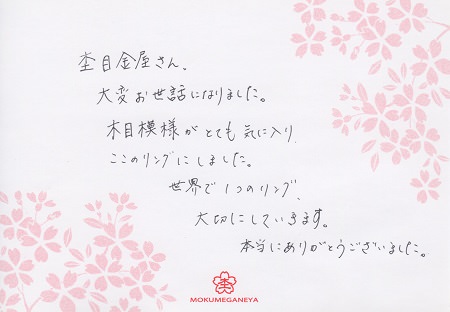 杢目金屋さん、
大変お世話になりました。
木目模様がとても気に入り
ここのリングにしました。
世界で1つのリング、
大切にしていきます。
本当にありがとうございました。
杢
MOKUMEGANEYA